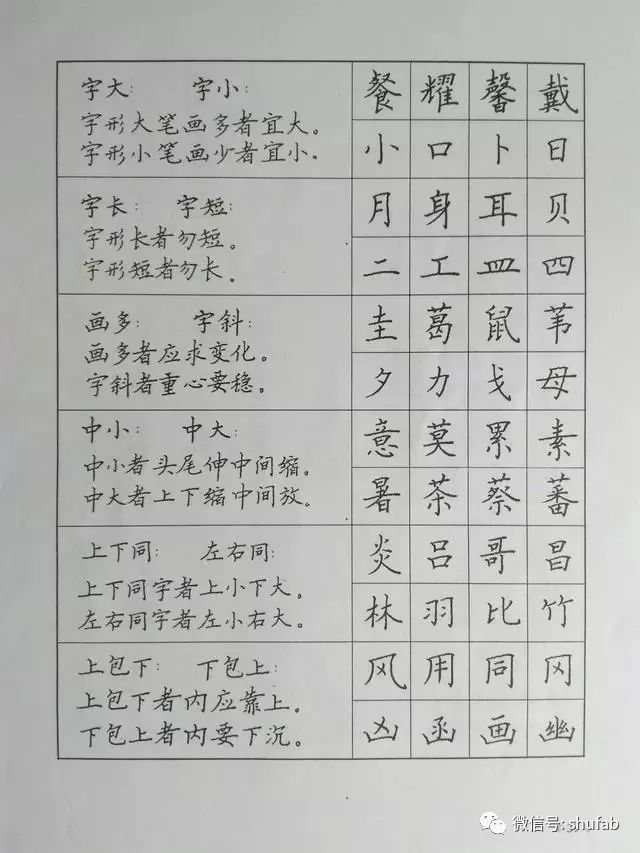 字大：　字小：
字形大笔画多者宜大。
字形小笔画少者宜小.
餐 耀 馨 戴
小 口 卜 日
字长：　字短：
字形长者勿短。
字形短者勿长.
月 身 耳 贝
二 工 皿 四
画多：　字斜：
画多者应求变化。
字斜者重心要稳。
圭 葛 鼠 苇
夕 力 戈 母
中小：　中大：
中小者头尾伸中间缩。
中大者上下缩中间放。
意 莫 累 素
暑 茶 蔡 蕃
上下同：　左右同：
上下同字者上小下大。
左右同字者左小右大。
炎 吕 哥 昌
林 羽 比 竹
上包下：　下包上：
上包下者内应靠上。
下包上者内要下沉。
风 用 同 冈
凶 函 画 幽
微信号: shufab